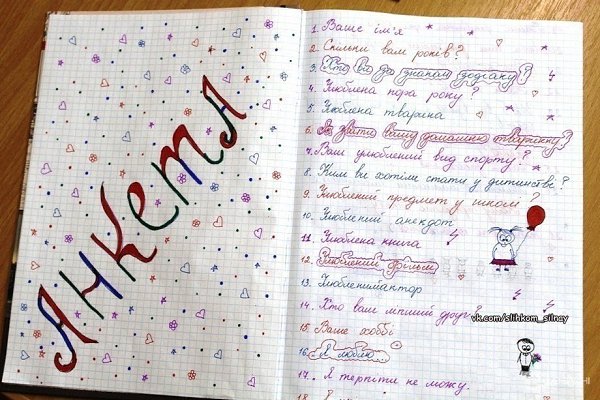 АНКЕТА
1. Ваше ім'я
2. Скільки вам років?
3. Хто ви за знаком зодіаку?
4. Улюблена пора року?
5. Улюблена тварина
6. Як звати вашу домашню тваринку?
7. Ваш улюблений вид спорту?
8. Ким ви хотіли стати у дитинстві?
9. Улюблений предмет у школі?
10. Улюблений анекдот
11. Улюблена книга
12. Улюблений фільм
13. Улюблений актор
14. Хто ваш ліпший друг?
vk.com/slihkom_silnzy
15. Ваше хоббі
16. Я люблю
17. Я терпіти не можу.
18.